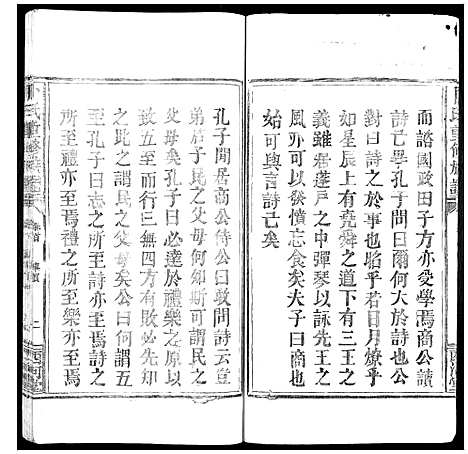 而諮國政田子方亦受學焉商公讀
詩已學孔子問曰爾何大於詩也公
對曰詩之於事也昭乎若日月燎乎
如星辰上有堯舜之道下有三王之
義雖居蓬戶之中彈琴以詠先王之
可以發憤忘食矣夫子曰商也
始可與言詩已矣
孔子閒居商公侍公曰敢問詩云豈
弟君子民之父母何如斯可謂民之
父母矣孔子曰必達於禮樂之原以
致五至而行三無四方有敗必先知
之此之謂民之父母矣公曰何謂五
至孔子曰志之所至詩亦至焉詩之
所至禮亦至焉禮之所至樂亦至焉
卜氏重修族譜